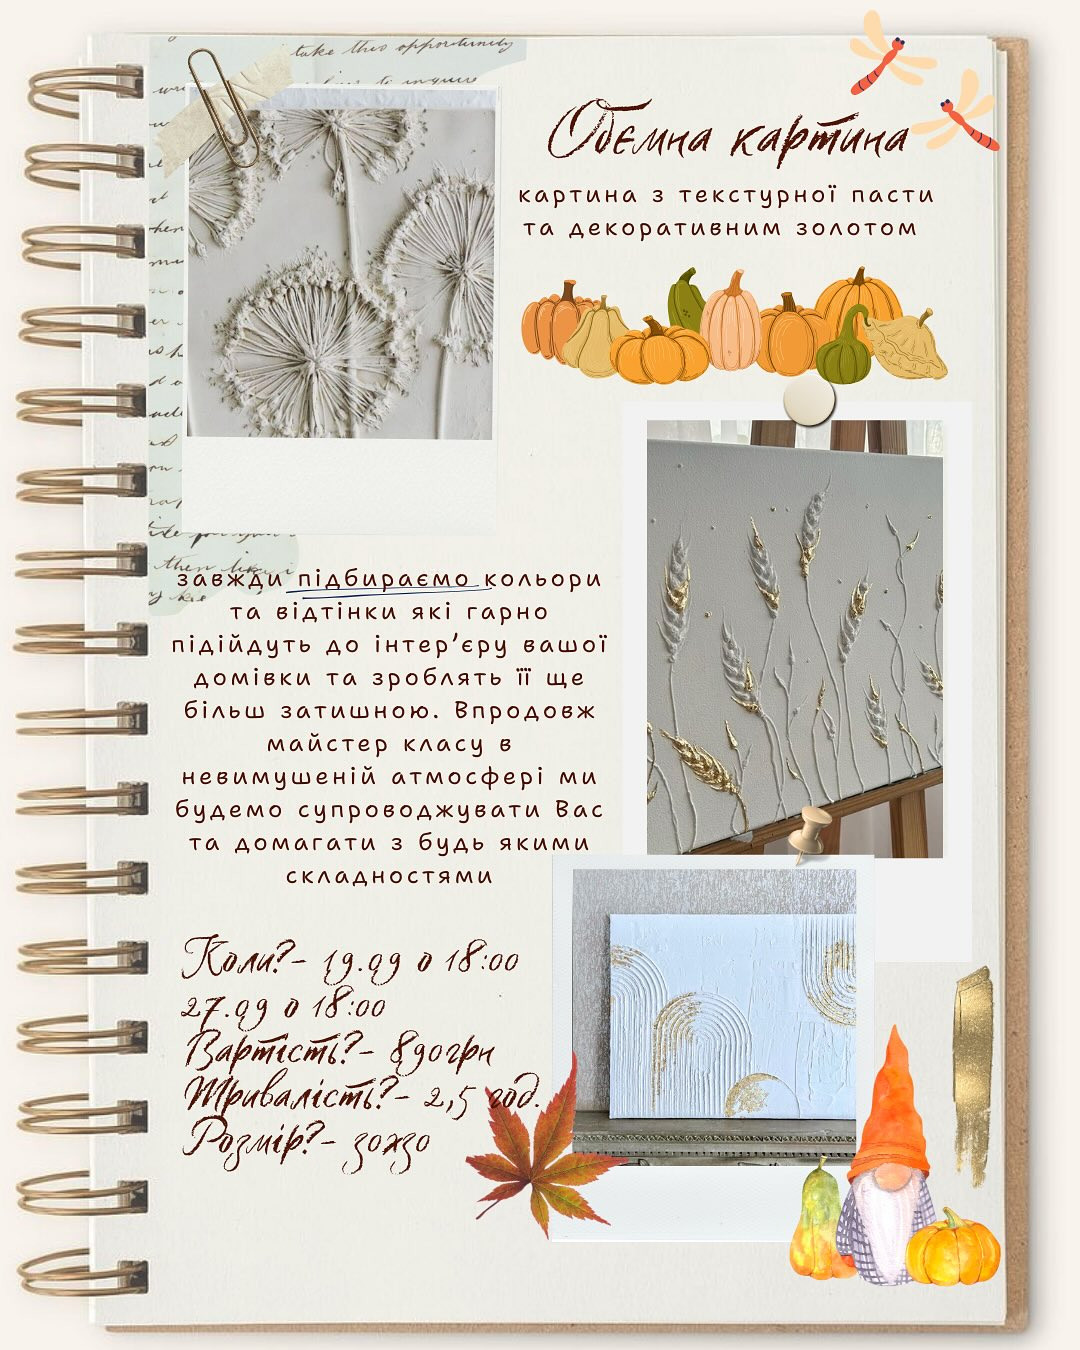 take this opportunity
Обємна картина
картина з текстурної пасти
та декоративним золотом
then
завжди підбираємо кольори
та відтінки які гарно
підійдуть до інтер’єру вашої
домівки та зроблять її ще
більш затишною. Впродовж
майстер класу в
невимушеній атмосфері ми
будемо супроводжувати Вас
та домагати з будь якими
складностями
Коли?- 19.09 о 18:00
27.09 о 18:00
Вартість?- 890грн
Тривалість?- 2,5 год.
Розмір?- 30х30